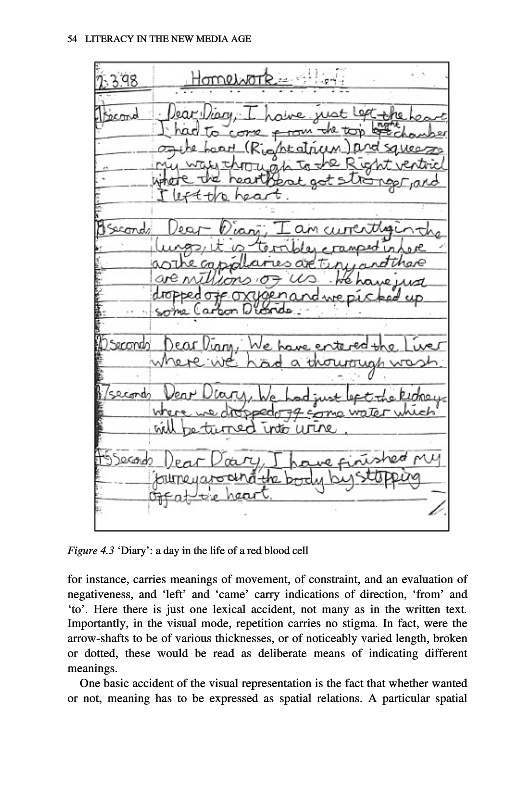 54 LITERACY IN THE NEW MEDIA AGE
2.3.98 Homework
1second Dear Diary, I have just left the heart
I had to come from the top left right chamber
of the heart (Right atrium) and squeeze
my way through to the Right ventricl
where the heartbeat got stronger, and
I left the heart.
8seconds Dear Diary, I am currently in the
lungs, it is terribly cramped in here
as the cappilaries are tiny and there
are millions of us. We have just
dropped off oxygen and we picked up
some Carbon Dioxide.
seconds Dear Diary, We have entered the Liver
where we had a thourough wash.
7seconds Dear Diary, We had just left the kidneys
where we dropped off some water which
will be turned into urine.
seconds Dear Diary, I have finished my
journey around the body by stopping
off at the heart.
Figure 4.3 ‘Diary’: a day in the life of a red blood cell
for instance, carries meanings of movement, of constraint, and an evaluation of
negativeness, and ‘left’ and ‘came’ carry indications of direction, ‘from’ and
‘to’. Here there is just one lexical accident, not many as in the written text.
Importantly, in the visual mode, repetition carries no stigma. In fact, were the
arrow-shafts to be of various thicknesses, or of noticeably varied length, broken
or dotted, these would be read as deliberate means of indicating different
meanings.
One basic accident of the visual representation is the fact that whether wanted
or not, meaning has to be expressed as spatial relations. A particular spatial